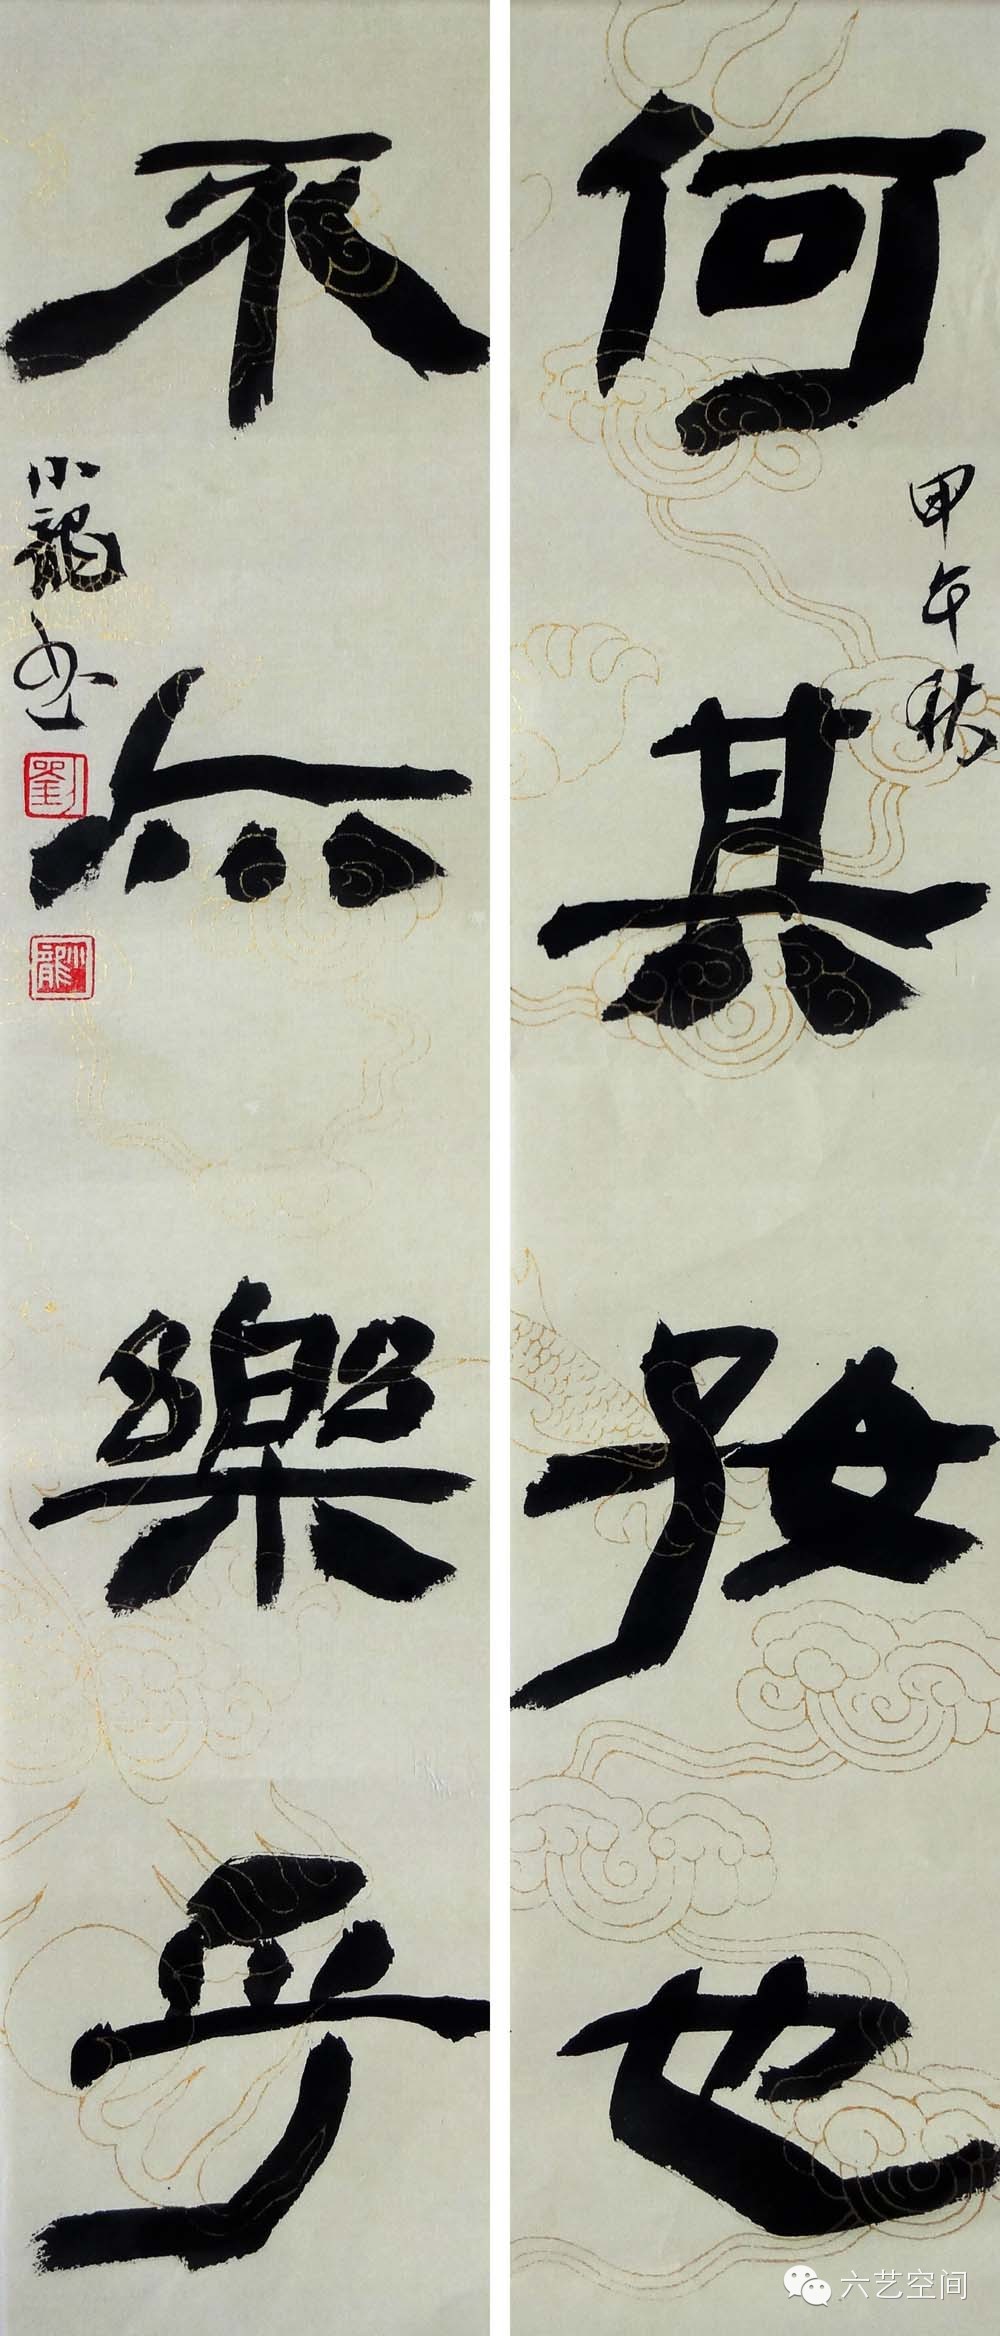 何其好也
甲午秋
不亦樂乎
小龍書
劉
小龍
六艺空间